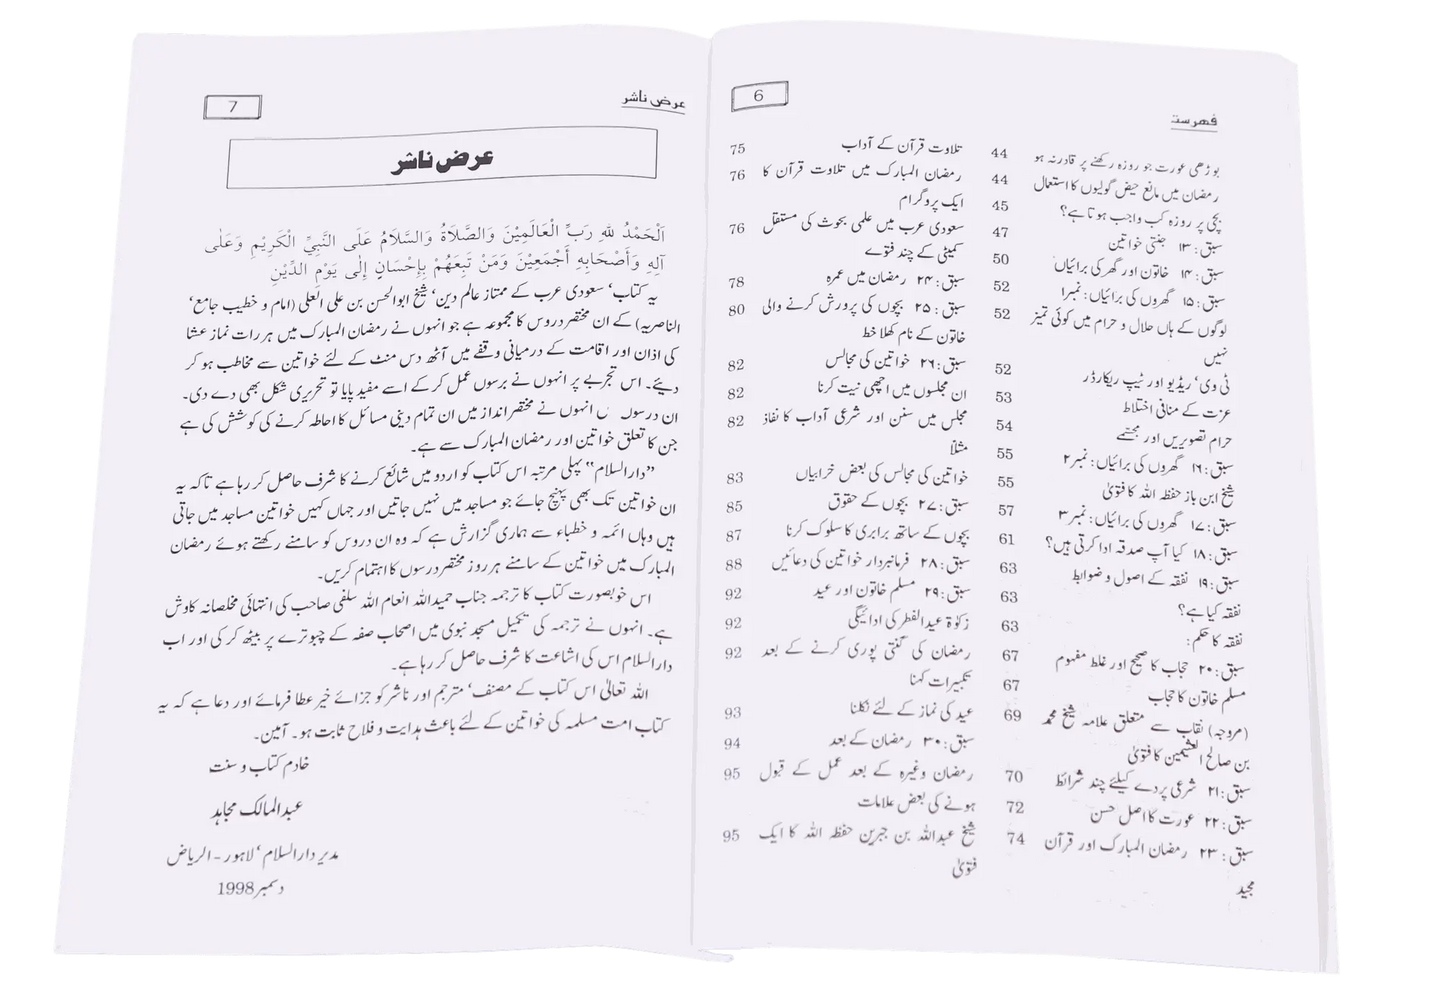 فہرست
6
بوڑھی عورت جو روزہ رکھنے پر قادر نہ ہو 44
رمضان میں مانع حیض گولیوں کا استعمال 44
بچی پر روزہ کب واجب ہوتا ہے؟ 45
سبق: ۱۳ جنتی خواتین 47
سبق: ۱۴ خاتون اور گھر کی برائیاں 50
سبق: ۱۵ گھروں کی برائیاں: نمبر۱ 52
لوگوں کے ہاں حلال و حرام میں کوئی تمیز 52
نہیں
ٹی وی، ریڈیو اور ٹیپ ریکارڈر 52
عزت کے منافی اختلاط 53
حرام تصویریں اور مجسّمے 54
سبق: ۱۶ گھروں کی برائیاں: نمبر۲ 55
شیخ ابن باز حفظہ اللہ کا فتویٰ 55
سبق: ۱۷ گھروں کی برائیاں: نمبر۳ 57
سبق: ۱۸ کیا آپ صدقہ ادا کرتی ہیں؟ 61
سبق: ۱۹ نفقہ کے اصول و ضوابط 63
نفقہ کیا ہے؟ 63
نفقہ کا حکم: 63
سبق: ۲۰ حجاب کا صحیح اور غلط مفہوم 67
مسلم خاتون کا حجاب 67
(مروجہ) نقاب سے متعلق علامہ شیخ محمد 69
بن صالح العثیمین کا فتویٰ
سبق: ۲۱ شرعی پردے کیلئے چند شرائط 70
سبق: ۲۲ عورت کا اصل حسن 72
سبق: ۲۳ رمضان المبارک اور قرآن 74
مجید
تلاوت قرآن کے آداب 75
رمضان المبارک میں تلاوت قرآن کا 76
ایک پروگرام
سعودی عرب میں علمی بحوث کی مستقل 76
کمیٹی کے چند فتوے
سبق: ۲۴ رمضان میں عمرہ 78
سبق: ۲۵ بچوں کی پرورش کرنے والی 80
خاتون کے نام کھلا خط
سبق: ۲۶ خواتین کی مجالس 82
ان مجلسوں میں اچھی نیت کرنا 82
مجلس میں سنن اور شرعی آداب کا نفاذ 82
مثلًا
خواتین کی مجالس کی بعض خرابیاں 83
سبق: ۲۷ بچوں کے حقوق 85
بچوں کے ساتھ برابری کا سلوک کرنا 87
سبق: ۲۸ فرمانبردار خواتین کی دعائیں 88
سبق: ۲۹ مسلم خاتون اور عید 92
زکوٰۃ عیدالفطر کی ادائیگی 92
رمضان کی گنتی پوری کرنے کے بعد 92
تکبیرات کہنا
عید کی نماز کے لئے نکلنا 93
سبق: ۳۰ رمضان کے بعد 94
رمضان وغیرہ کے بعد عمل کے قبول 95
ہونے کی بعض علامات
شیخ عبداللہ بن جبرین حفظہ اللہ کا ایک 95
فتویٰ
عرض ناشر
7
عرض ناشر
اَلْحَمْدُ للهِ رَبِّ الْعَالَمِيْنَ وَالصَّلَاةُ وَالسَّلَامُ عَلَى النَّبِيِّ الْكَرِيْمِ وَعَلٰى
آلِهِ وَأَصْحَابِهِ أَجْمَعِيْنَ وَمَنْ تَبِعَهُمْ بِإِحْسَانٍ إِلٰى يَوْمِ الدِّيْنِ
یہ کتاب، سعودی عرب کے ممتاز عالم دین، شیخ ابوالحسن بن علی العلی (امام و خطیب جامع،
الناصریہ) کے ان مختصر دروس کا مجموعہ ہے جو انہوں نے رمضان المبارک میں ہر رات نماز عشا
کی اذان اور اقامت کے درمیانی وقفے میں آٹھ دس منٹ کے لئے خواتین سے مخاطب ہو کر
دیئے۔ اس تجربے پر انہوں نے برسوں عمل کر کے اسے مفید پایا تو تحریری شکل بھی دے دی۔
ان درسوں انہوں نے مختصر انداز میں ان تمام دینی مسائل کا احاطہ کرنے کی کوشش کی ہے
جن کا تعلق خواتین اور رمضان المبارک سے ہے۔
"دارالسلام" پہلی مرتبہ اس کتاب کو اردو میں شائع کرنے کا شرف حاصل کر رہا ہے تاکہ یہ
ان خواتین تک بھی پہنچ جائے جو مساجد میں نہیں جاتیں اور جہاں کہیں خواتین مساجد میں جاتی
ہیں وہاں ائمہ و خطباء سے ہماری گزارش ہے کہ وہ ان دروس کو سامنے رکھتے ہوئے رمضان
المبارک میں خواتین کے سامنے ہر روز مختصر درسوں کا اہتمام کریں۔
اس خوبصورت کتاب کا ترجمہ جناب حمیداللہ انعام اللہ سلفی صاحب کی انتہائی مخلصانہ کاوش
ہے۔ انہوں نے ترجمہ کی تکمیل مسجد نبوی میں اصحاب صفہ کے چبوترے پر بیٹھ کر کی اور اب
دارالسلام اس کی اشاعت کا شرف حاصل کر رہا ہے۔
اللہ تعالیٰ اس کتاب کے مصنف، مترجم اور ناشر کو جزائے خیر عطا فرمائے اور دعا ہے کہ یہ
کتاب امت مسلمہ کی خواتین کے لئے باعث ہدایت و فلاح ثابت ہو۔ آمین۔
خادم کتاب و سنت
عبدالمالک مجاہد
مدیر دارالسلام، لاہور - الریاض
دسمبر 1998